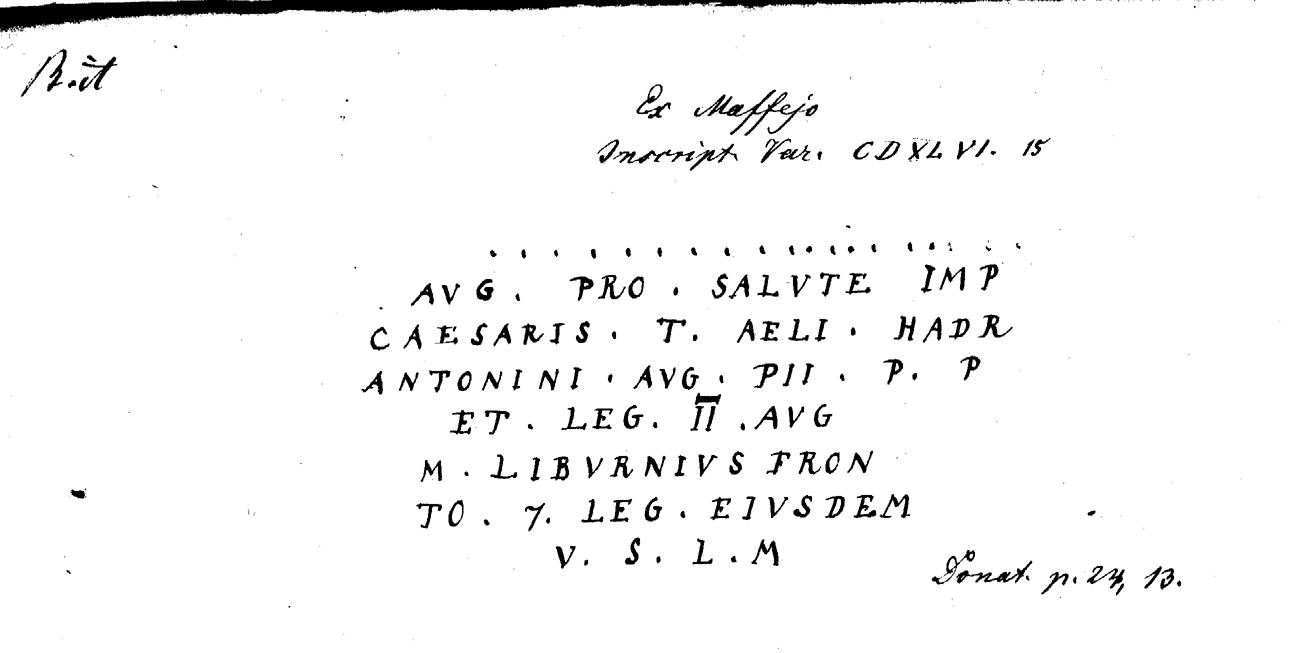 Brit
Ex Maffejo
Inscript. Var. CDXLVI. 15
. . . . . . . . . . . . . . . . . . .
AVG. PRO. SALVTE IMP
CAESARIS. T. AELI. HADR
ANTONINI. AVG. PII. P. P
ET. LEG. II. AVG
M. LIBVRNIVS FRON
TO. 7. LEG. EIVSDEM
V. S. L. M
Donat. p. 24, 13.